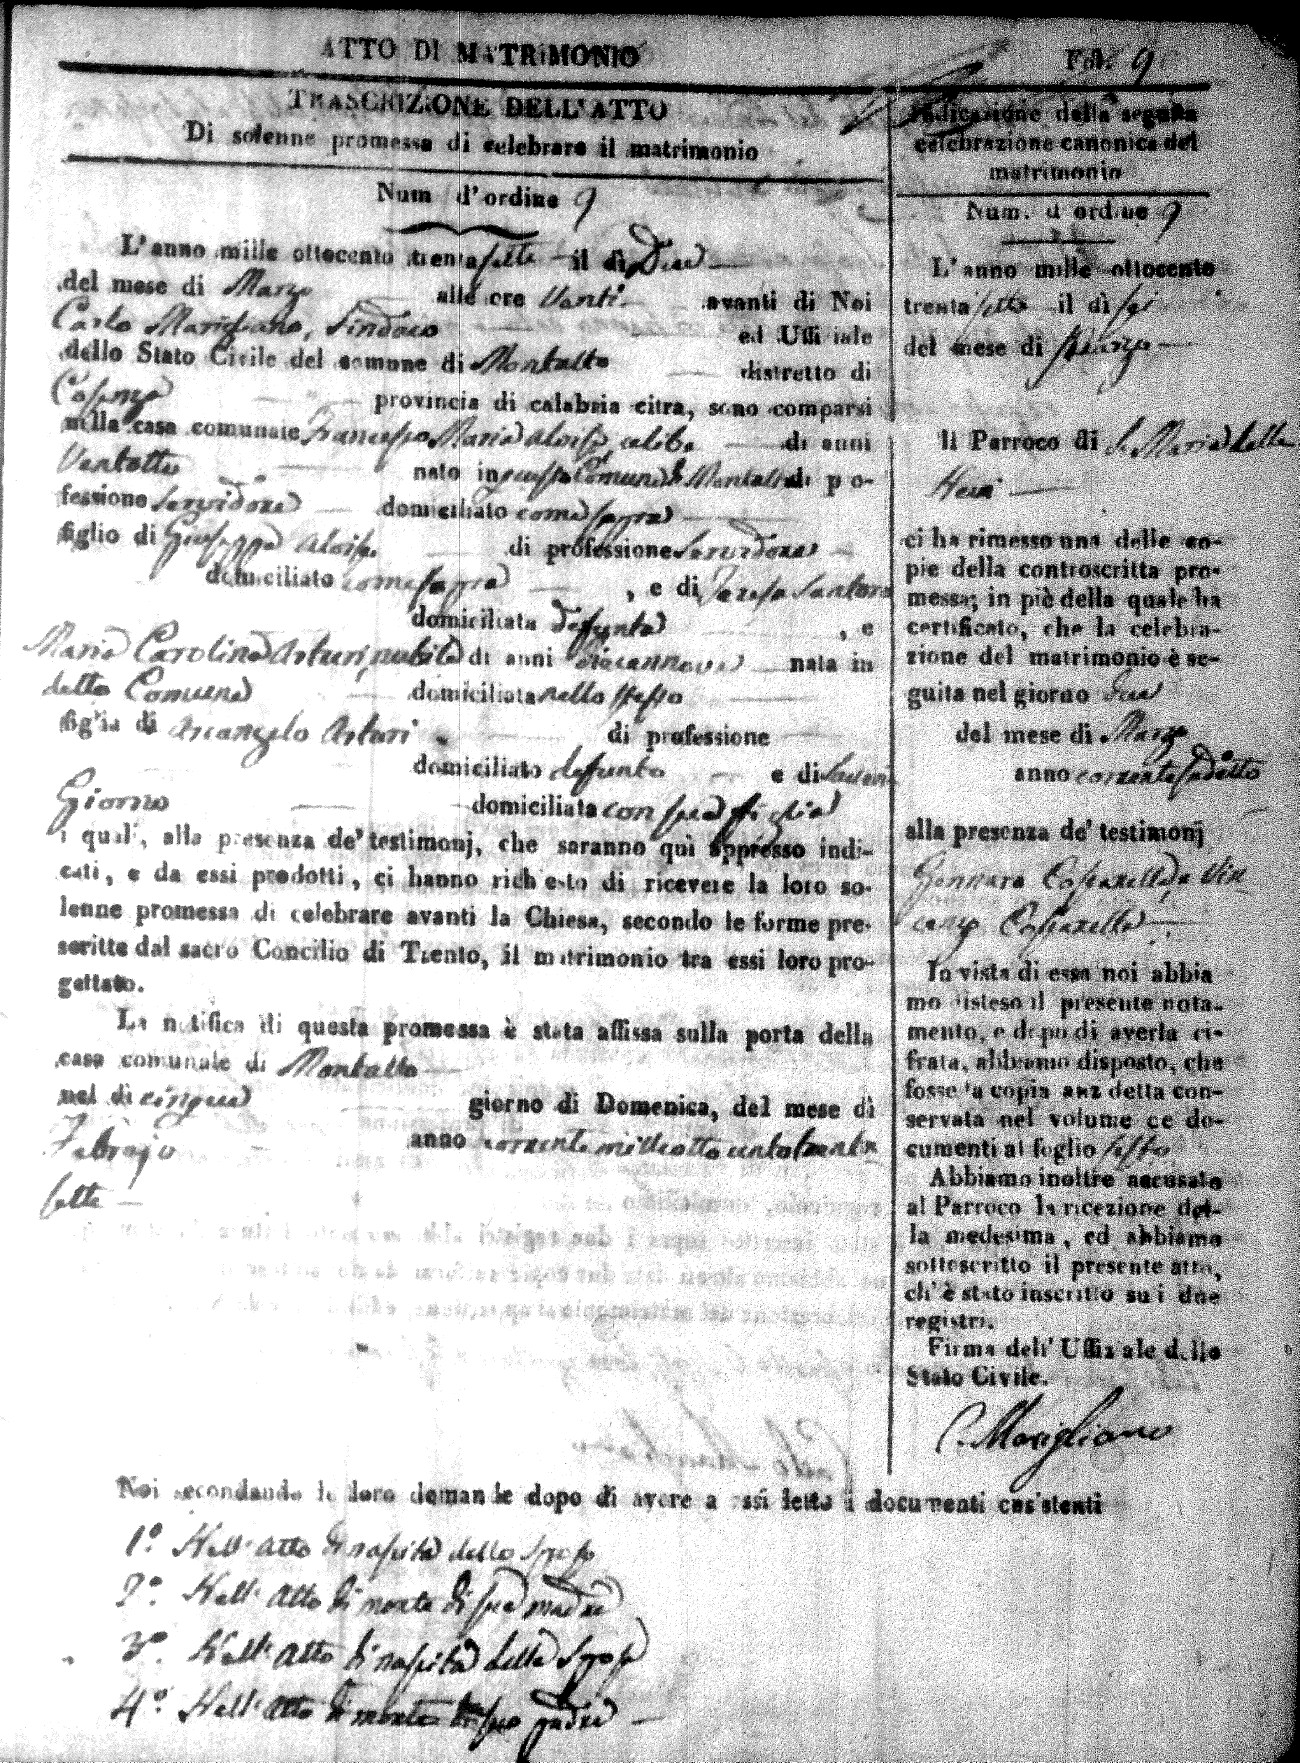 ATTO DI MATRIMONIO
Fol. 9
TRASCRIZIONE DELL'ATTO
Di solenne promessa di celebrare il matrimonio
Num d'ordine 9
L'anno mille ottocento trenta sette il dì Due
del mese di Marzo alle ore Venti avanti di Noi
Carlo Marigliano, Sindaco ed Uffiziale
dello Stato Civile del comune di Montalto distretto di
Cosenza provincia di calabria citra, sono comparsi
nella casa comunale Francesco Maria Aloise celibe di anni
Ventotto nato in questo Comune di Montalto di pro-
fessione Servidore domiciliato come sopra
figlio di Giuseppe Aloise di professione Servidore
domiciliato come sopra , e di Teresa Santoro
domiciliata defunta , e
Maria Carolina Arturi, nubile di anni diciannove nata in
detto Comune domiciliata nello stesso
figlia di Arcangelo Arturi di professione
domiciliato defunto e di
Giorno domiciliata con sua figlia
i quali, alla presenza de' testimonj, che saranno quì appresso indi-
cati, e da essi prodotti, ci hanno richiesto di ricevere la loro so-
lenne promessa di celebrare avanti la Chiesa, secondo le forme pre-
scritte dal sacro Concilio di Trento, il matrimonio tra essi loro pro-
gettato.
La notifica di questa promessa è stata affissa sulla porta della
casa comunale di Montalto
nel dì cinque giorno di Domenica, del mese di
Febrajo anno corrente milleottocentotrenta
sette
Indicazione della seguita
celebrazione canonica del
matrimonio
Num. d'ordine 9
L'anno mille ottocento
trenta sette il dì sei
del mese di Marzo
Il Parroco di S. Maria della
ci ha rimesso una delle co-
pie della controscritta pro-
messa; in piè della quale ha
certificato, che la celebra-
zione del matrimonio è se-
guita nel giorno due
del mese di Marzo
anno corrente sudetto
alla presenza de' testimonj
Gennaro Casparello, e Vin
cenzo Casparello
In vista di essa noi abbia
mo disteso il presente nota-
mento, e dopo di averla ci-
frata, abbiamo disposto, che
fosse la copia anzidetta con-
servata nel volume de do-
cumenti al foglio sesto
Abbiamo inoltre accusato
al Parroco la ricezione del-
la medesima, ed abbiamo
sottoscritto il presente atto,
ch' è stato inscritto su i due
registri.
Firma dell' Uffiziale dello
Stato Civile.
C. Marigliano
Noi secondando le loro domande dopo di avere a essi letto i documenti consistenti
1.º Nell' atto di nascita dello sposo
2.º Nell' atto di morte di sua madre
3.º Nell' atto di nascita della sposa
4.º Nell' atto di morte di suo padre